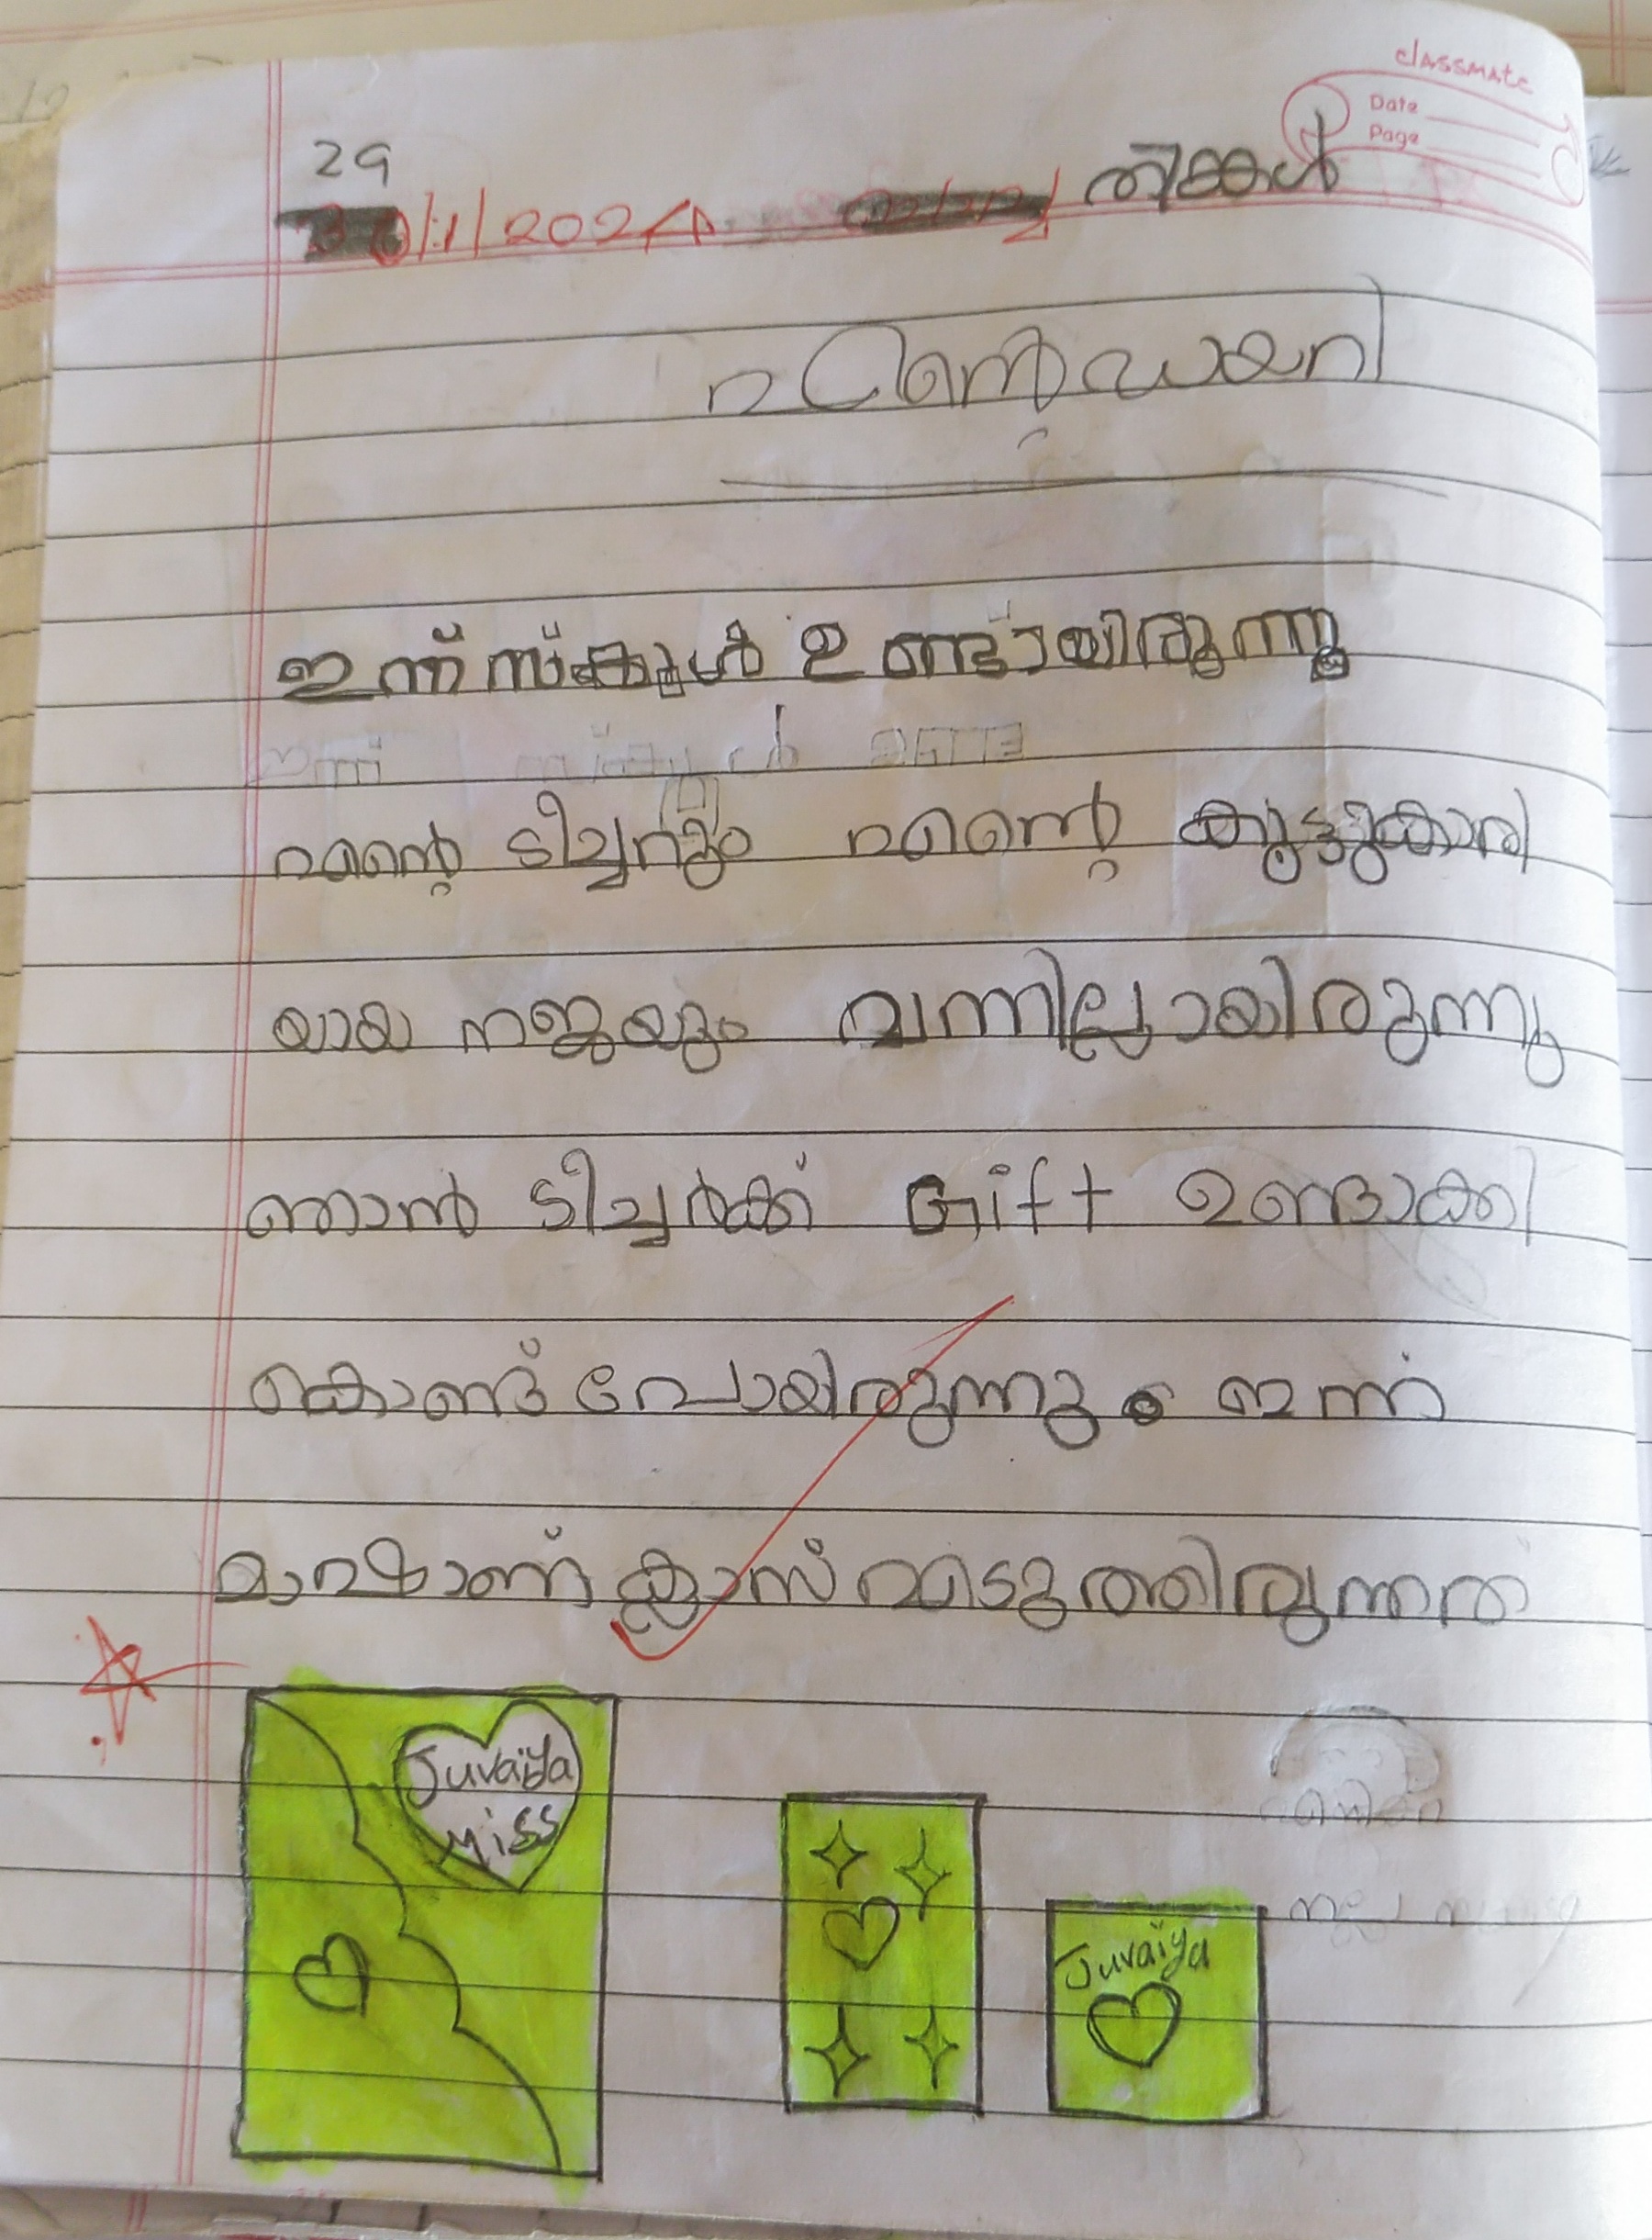 classmate
Date
Page
29 തിങ്കൾ
/1/2024
എൻ്റെ ഡയറി
ഇന്ന് സ്കൂൾ ഉണ്ടായിരുന്നു
എൻ്റെ ടീച്ചറും എൻ്റെ കൂട്ടുകാരി
യായ നജയും വന്നില്ലായിരുന്നു
ഞാൻ ടീച്ചർക്ക് Gift ഉണ്ടാക്കി
കൊണ്ട് പോയിരുന്നു ഇന്ന്
മാഷാണ് ക്ലാസ് എടുത്തിരുന്നത
Juvaiya
Miss
Juvaiya